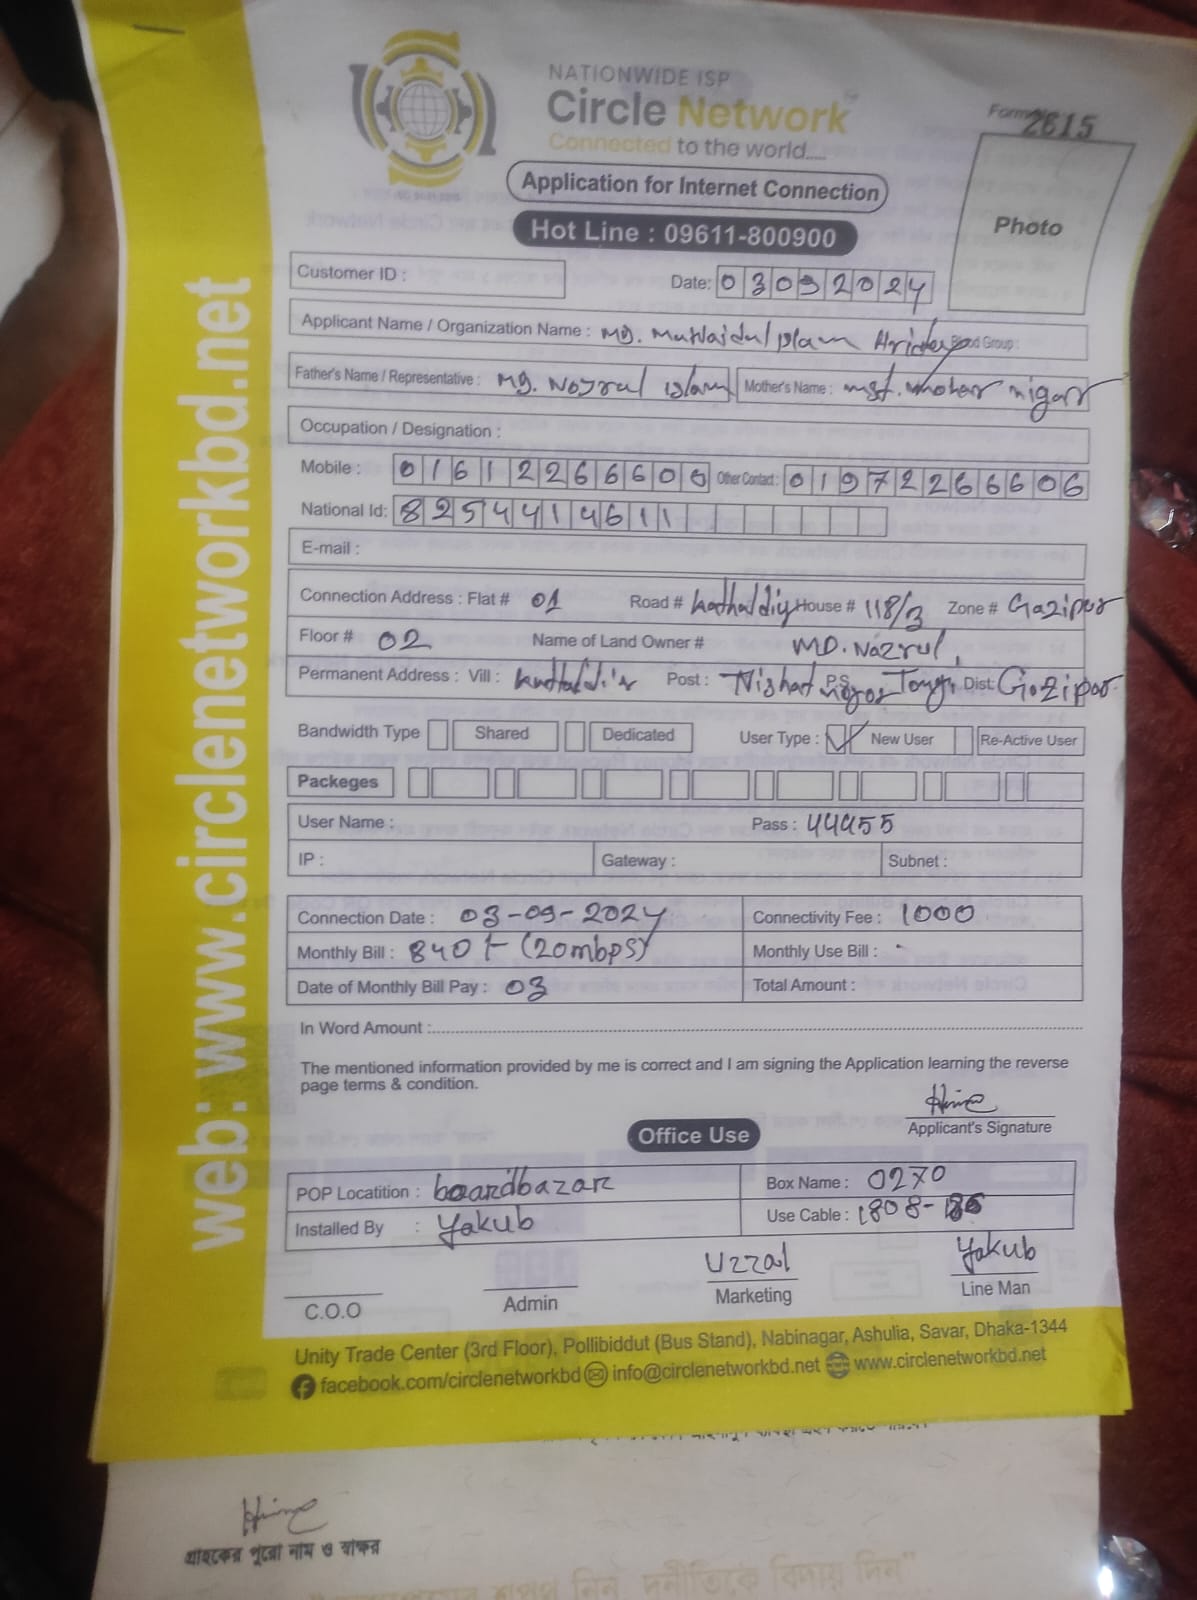 NATIONWIDE ISP
Circle Network
Connected to the world.....
Form 2615
Application for Internet Connection
Photo
Hot Line : 09611-800900
Customer ID :
Date: 03092024
Applicant Name / Organization Name : MD. Islam Group :
Father's Name / Representative : MD. Nozrul Islam Mother's Name : Mst. Mohar nigar
Occupation / Designation :
Mobile : 01612266606 Other Contact : 01972266606
National Id: 8254414611
E-mail :
Connection Address : Flat # 01 Road # House # 118/3 Zone # Gazipur
Floor # 02 Name of Land Owner # MD. Nazrul
Permanent Address : Vill : Post : Nishat P.S Tongi Dist: Gazipur
Bandwidth Type Shared Dedicated User Type : ✓ New User Re-Active User
Packeges
User Name : Pass : 44455
IP : Gateway : Subnet :
Connection Date : 03-09-2024 Connectivity Fee : 1000
Monthly Bill : 840/- (20mbps) Monthly Use Bill :
Date of Monthly Bill Pay : 03 Total Amount :
In Word Amount :
The mentioned information provided by me is correct and I am signing the Application learning the reverse
page terms & condition.
Applicant's Signature
Office Use
POP Locatition : boardbazar Box Name : 0270
Installed By : Yakub Use Cable : 1808-
Uzzal Yakub
C.O.O Admin Marketing Line Man
Unity Trade Center (3rd Floor), Pollibiddut (Bus Stand), Nabinagar, Ashulia, Savar, Dhaka-1344
facebook.com/circlenetworkbd info@circlenetworkbd.net www.circlenetworkbd.net
web: www.circlenetworkbd.net
গ্রাহকের পুরো নাম ও স্বাক্ষর
শপথ নিন দুর্নীতিকে বিদায় দিন"